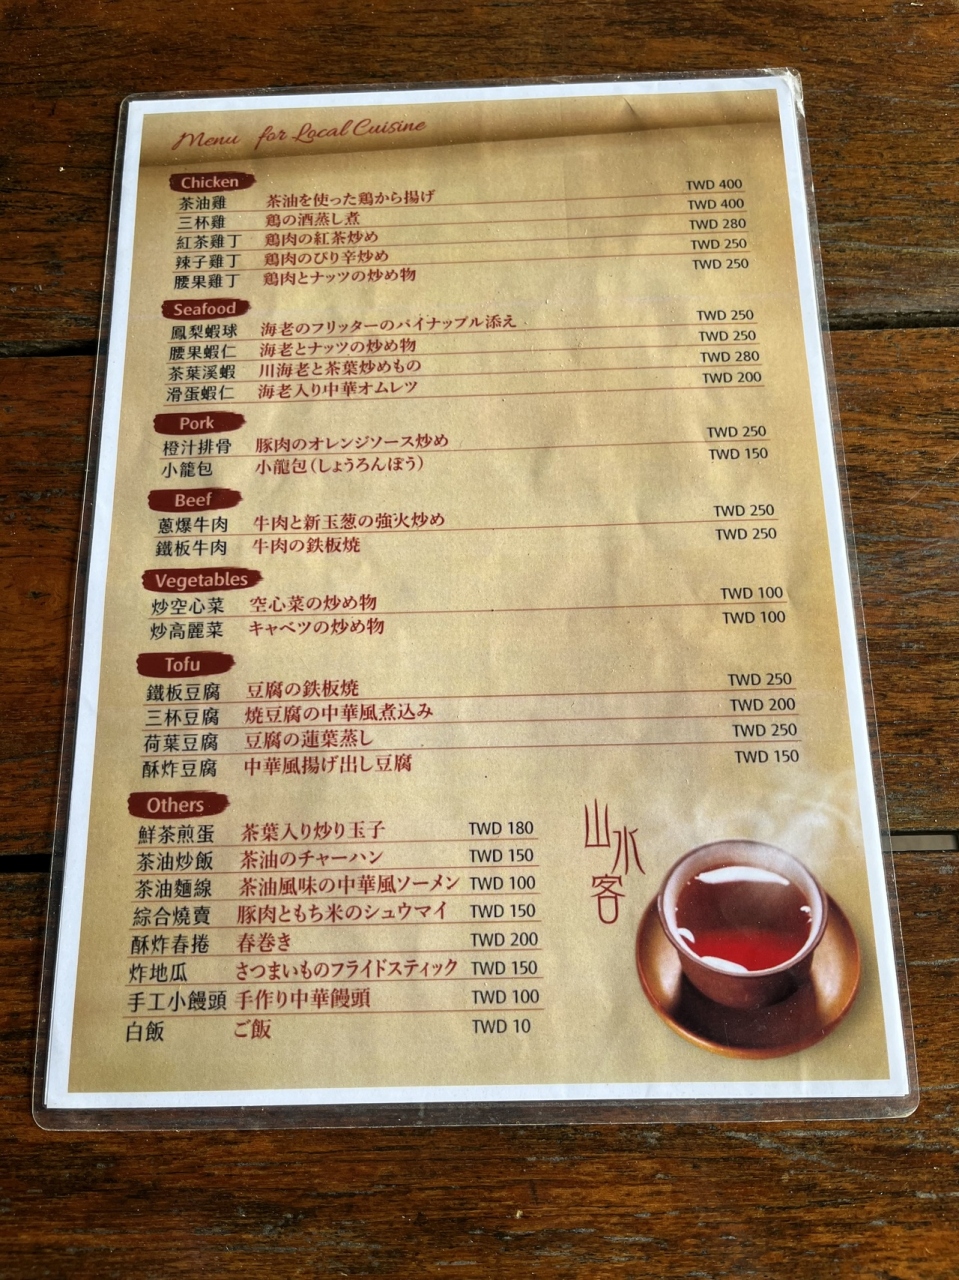 Menu for Local Cuisine
Chicken
茶油雞 茶油を使った鶏から揚げ TWD 400
三杯雞 鶏の酒蒸し煮 TWD 400
紅茶雞丁 鶏肉の紅茶炒め TWD 280
辣子雞丁 鶏肉のぴり辛炒め TWD 250
腰果雞丁 鶏肉とナッツの炒め物 TWD 250
Seafood
鳳梨蝦球 海老のフリッターのパイナップル添え TWD 250
腰果蝦仁 海老とナッツの炒め物 TWD 250
茶葉溪蝦 川海老と茶葉炒めもの TWD 280
滑蛋蝦仁 海老入り中華オムレツ TWD 200
Pork
橙汁排骨 豚肉のオレンジソース炒め TWD 250
小籠包 小龍包(しょうろんぽう) TWD 150
Beef
蔥爆牛肉 牛肉と新玉葱の強火炒め TWD 250
鐵板牛肉 牛肉の鉄板焼 TWD 250
Vegetables
炒空心菜 空心菜の炒め物 TWD 100
炒高麗菜 キャベツの炒め物 TWD 100
Tofu
鐵板豆腐 豆腐の鉄板焼 TWD 250
三杯豆腐 焼豆腐の中華風煮込み TWD 200
荷葉豆腐 豆腐の蓮葉蒸し TWD 250
酥炸豆腐 中華風揚げ出し豆腐 TWD 150
Others
鮮茶煎蛋 茶葉入り炒り玉子 TWD 180
茶油炒飯 茶油のチャーハン TWD 150
茶油麵線 茶油風味の中華風ソーメン TWD 100
綜合燒賣 豚肉ともち米のシュウマイ TWD 150
酥炸春捲 春巻き TWD 200
炸地瓜 さつまいものフライドスティック TWD 150
手工小饅頭 手作り中華饅頭 TWD 100
白飯 ご飯 TWD 10
山水客